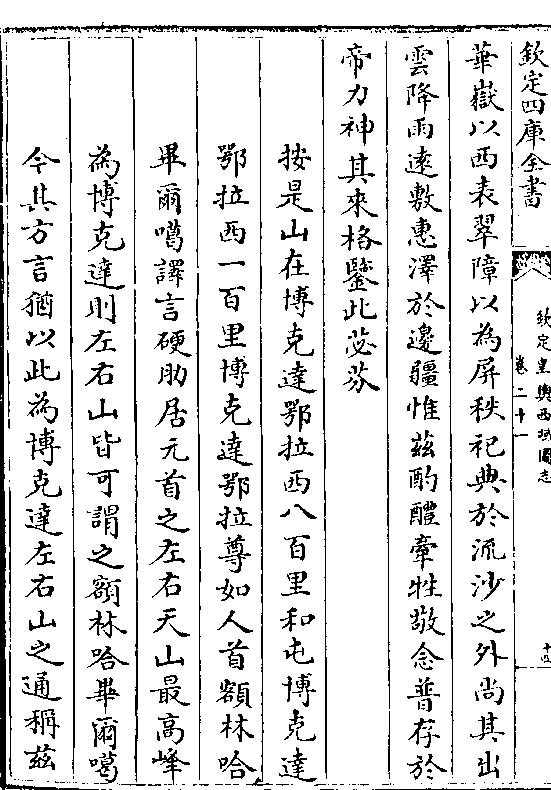 欽定四庫全書
欽定皇輿西域圖志
卷二十一
十四
華嶽以西表翠障以為屏秩祀典於流沙之外尚其出
雲降雨遠敷惠澤於邊疆惟茲酌醴牽牲敬念普存於
帝力神其來格鑒此苾芬
按是山在博克達鄂拉西八百里和屯博克達
鄂拉西一百里博克達鄂拉尊如人首額林哈
畢爾噶譯言硬肋居元首之左右天山最高峰
為博克達則左右山皆可謂之額林哈畢爾噶
今其方言猶以此為博克達左右山之通稱茲